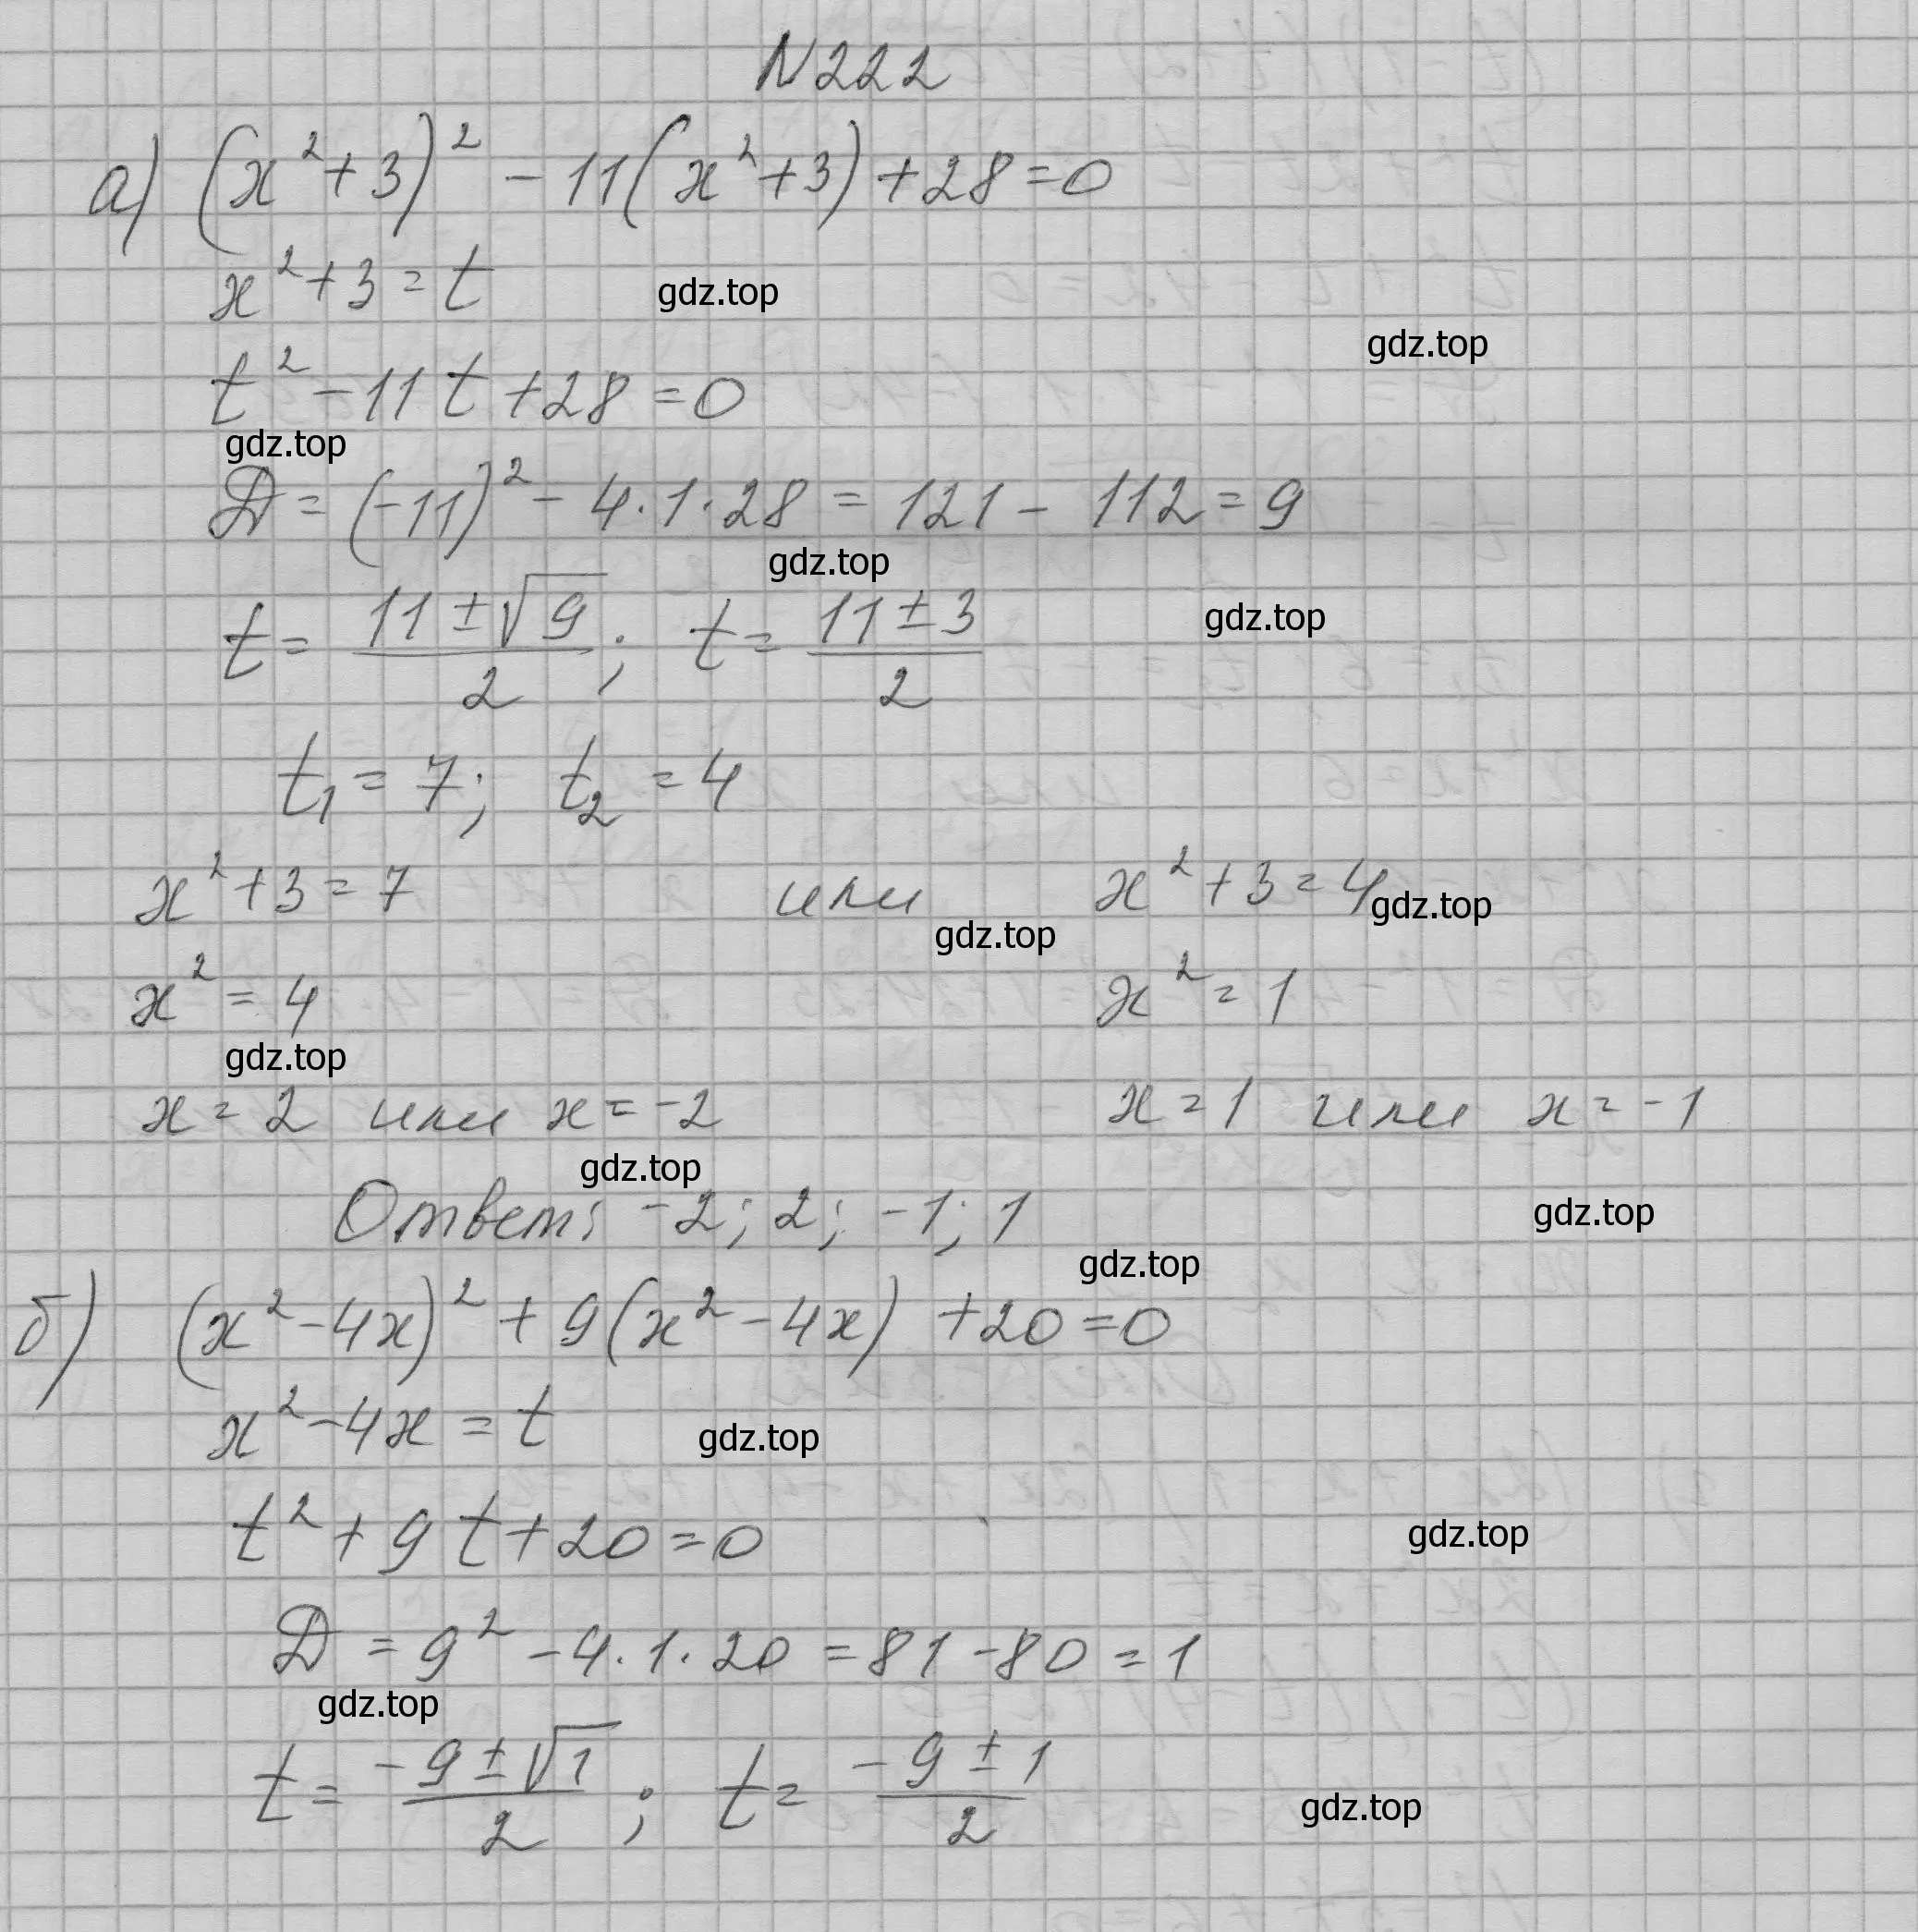 N222
а) (x²+3)² - 11(x²+3)+28=0
x²+3=t
gdz.top
gdz.top
t²-11t+28=0
gdz.top
D=(-11)²-4·1·28=121-112=9
gdz.top
t=(11±√9)/2; t=(11±3)/2
gdz.top
t₁=7; t₂=4
x²+3=7 или x²+3=4
gdz.top
gdz.top
x²=4 x²=1
gdz.top
x=2 или x=-2 x=1 или x=-1
gdz.top
Ответ: -2; 2; -1; 1
gdz.top
gdz.top
б) (x²-4x)²+9(x²-4x)+20=0
x²-4x=t
gdz.top
t²+9t+20=0
gdz.top
D=9²-4·1·20=81-80=1
gdz.top
t=(-9±√1)/2; t=(-9±1)/2
gdz.top